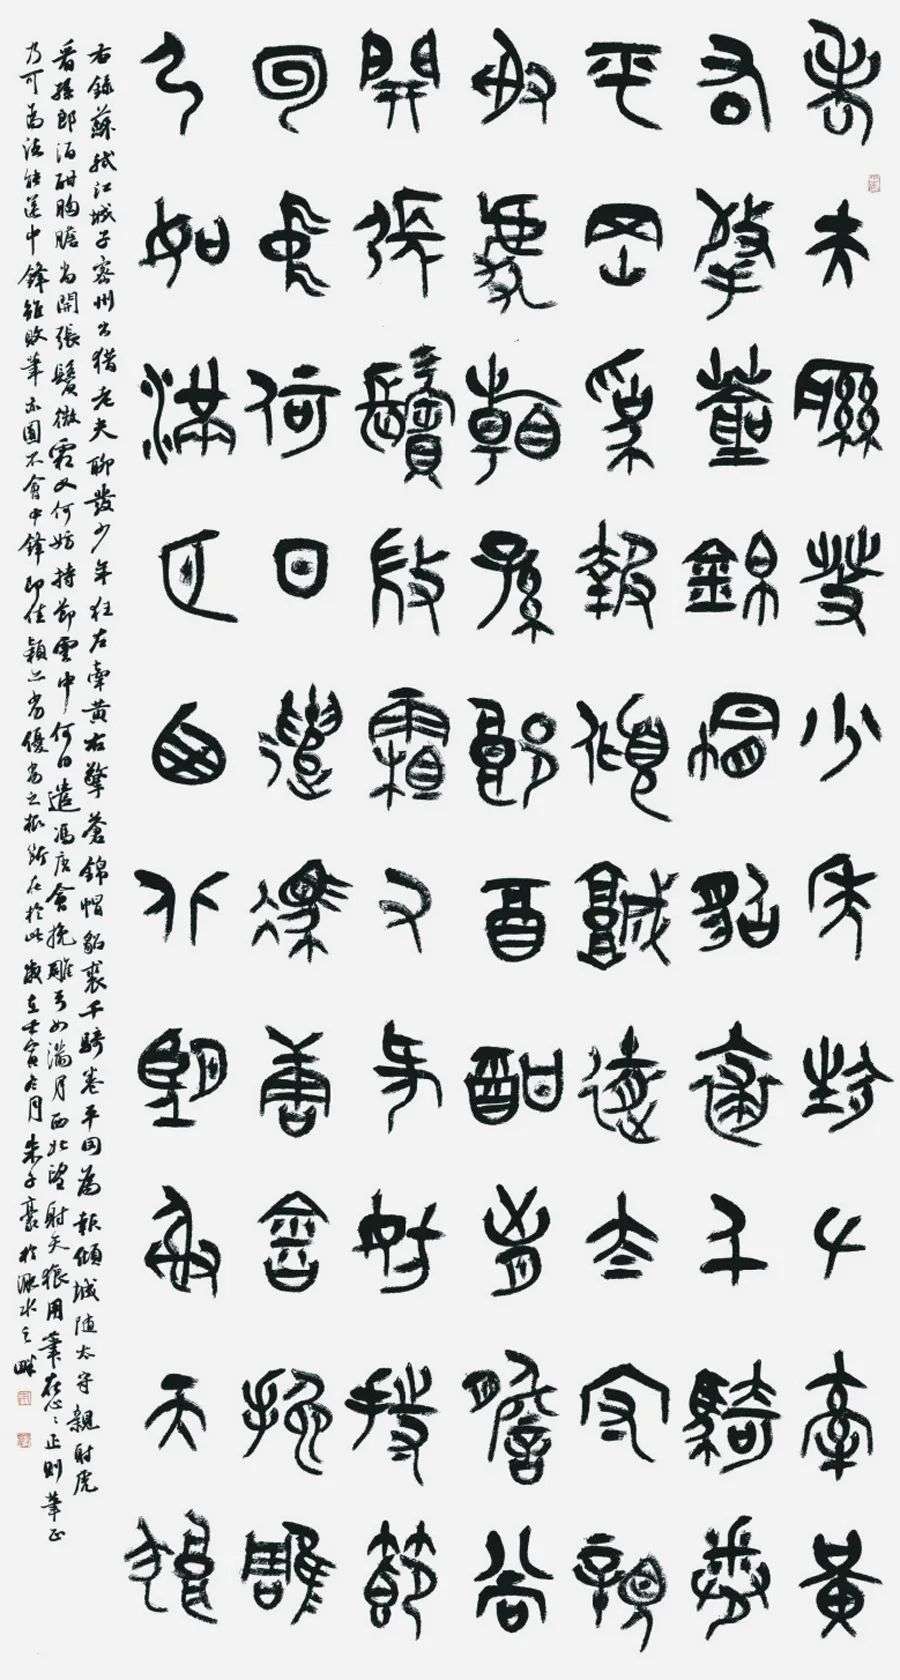 老夫聊發少年狂左牽黃
右擎蒼錦帽貂裘千騎卷
平岡爲報傾城隨太守親
射虎看孫郎酒酣胸膽尚
開張鬢微霜又何妨持節
雲中何日遣馮唐會挽雕
弓如滿月西北望射天狼
右錄蘇軾江城子密州出獵老夫聊發少年狂左牽黃右擎蒼錦帽貂裘千騎卷平岡為報傾城隨太守親射虎
看孫郎酒酣胸膽尚開張鬢微霜又何妨持節雲中何日遣馮唐會挽雕弓如滿月西北望射天狼用筆在心〻正則筆正
乃可為法能運中鋒雖敗筆亦圓不會中鋒即佳穎亦劣優劣之根斷在於此歲在壬寅冬月朱子豪於水之畔